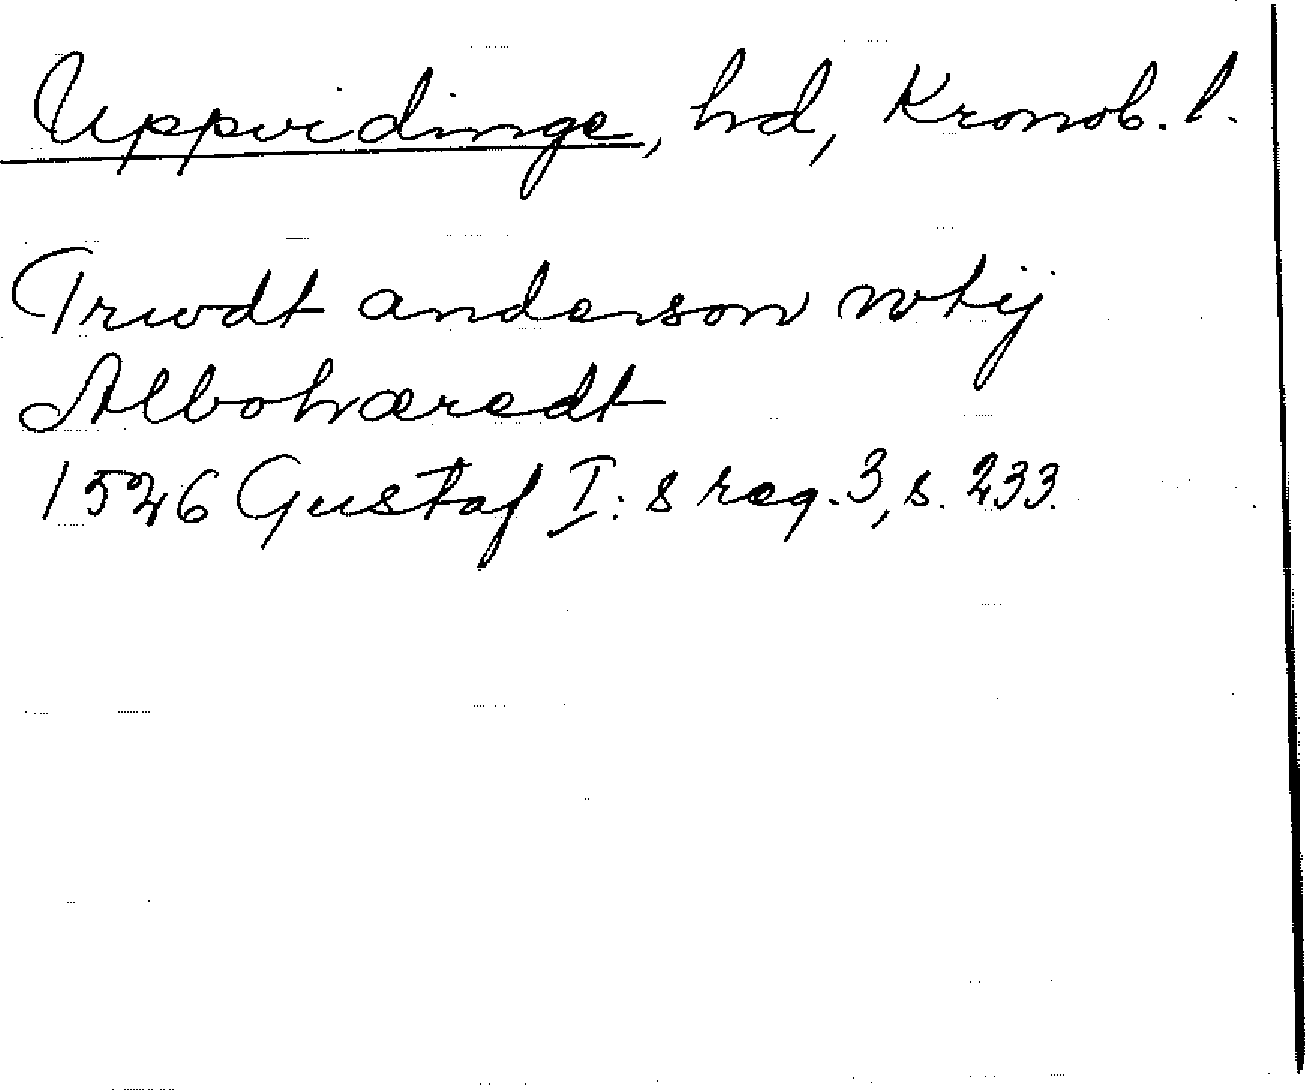 Uppvidinge, hd, Kronob. l.
Trwdt anderson wtij
Albohæredt
1526 Gustaf I:s reg. 3, s. 233.